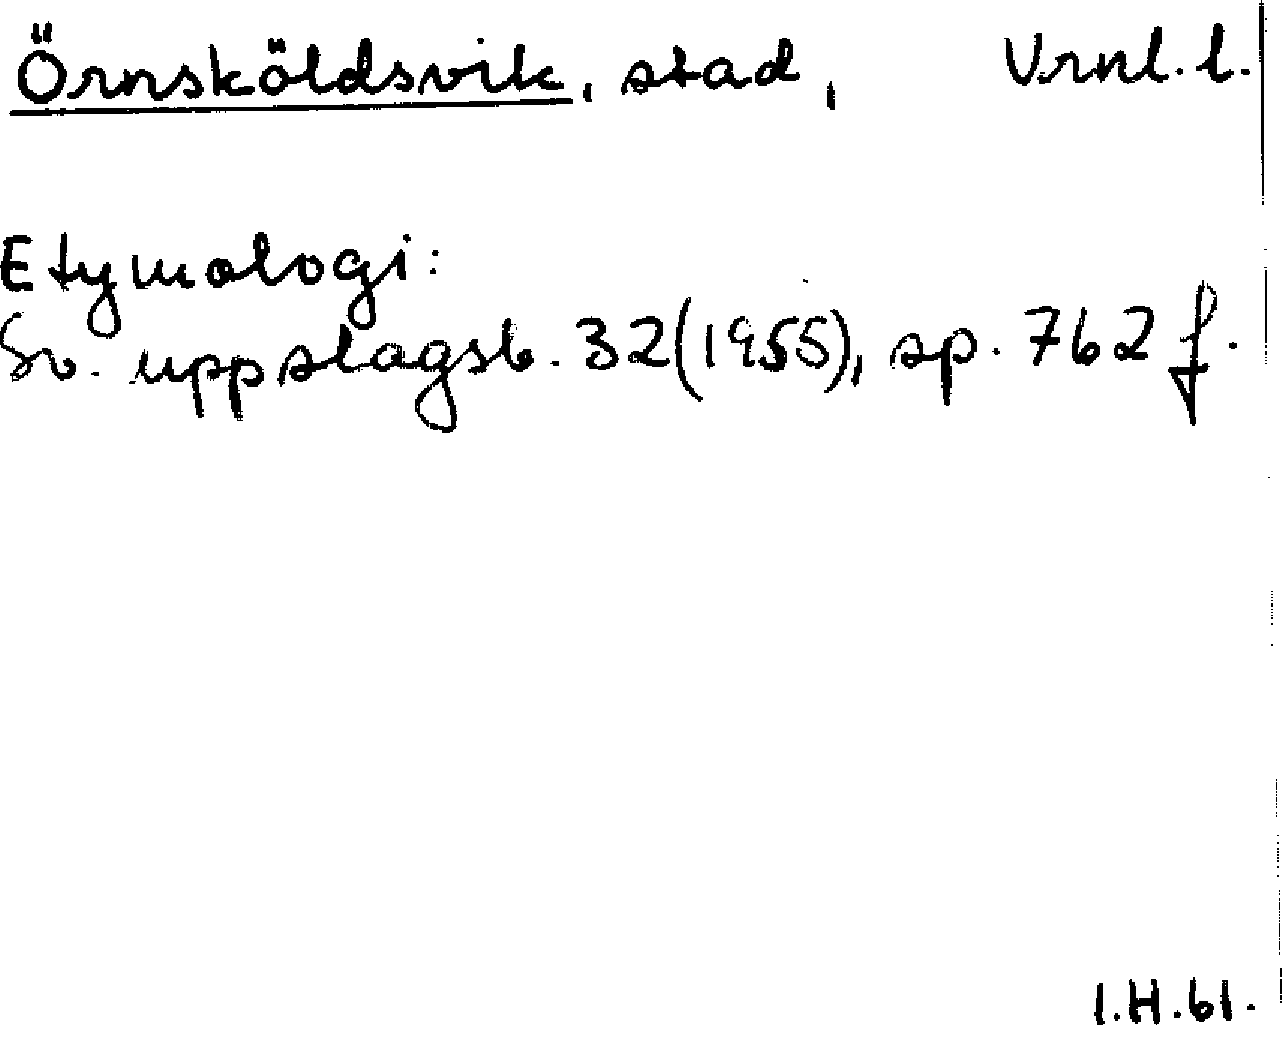 Örnsköldsvik, stad, Vrnl. l.
Etymologi:
Sv. uppslagsb. 32(1955), sp. 762 f.
I.H.61.